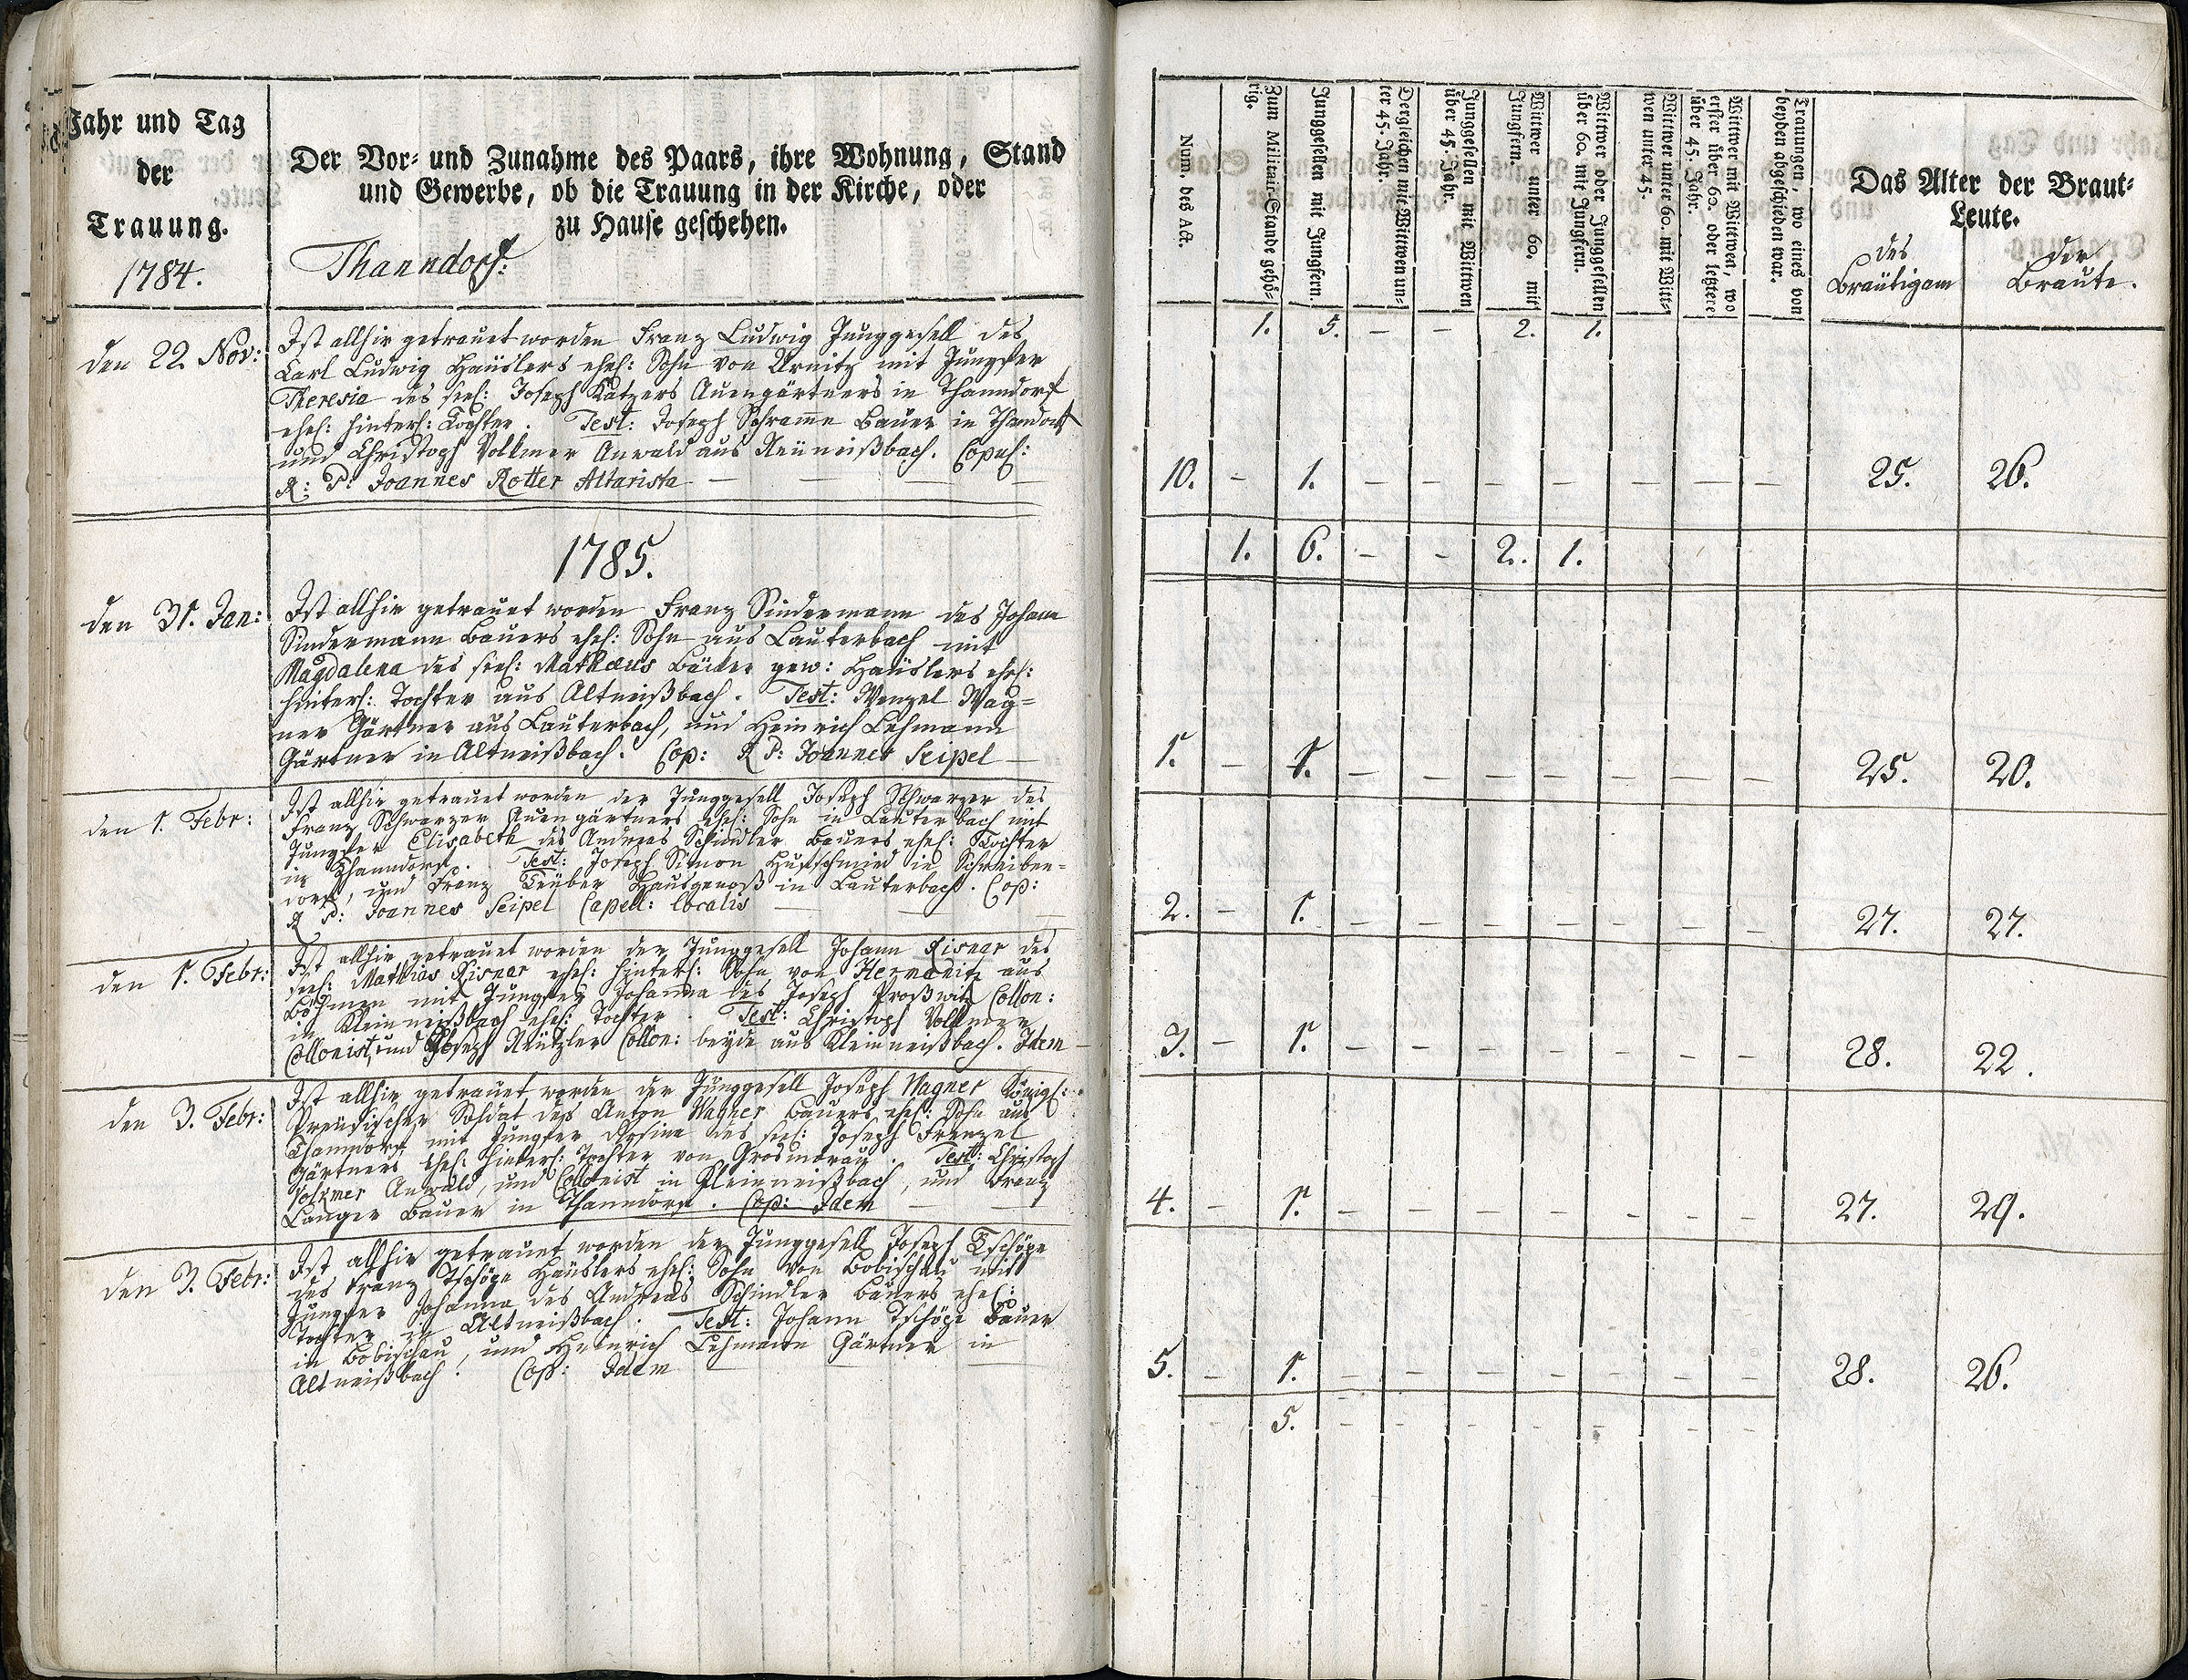 Jahr und Tag
der
Trauung.
1784.
Der Vor- und Zunahme des Paars, ihre Wohnung, Stand
und Gewerbe, ob die Trauung in der Kirche, oder
zu Hause geschehen.
Thanndorf:
den 22. Nov:
Ist allhir getrauet worden Franz Ludwig Junggesell des
Carl Ludwig Häuslers ehel: Sohn von Urnitz mit Jungfer
Theresia des seel: Joseph Katzers Auengärtners in Thanndorf
ehel: hinterl: Tochter. Test: Joseph Schramm Bauer in Thandorf
und Christoph Volkmer Anwald aus Neuneißbach. Copul:
R: P: Joannes Rotter Altarista
1785.
den 31. Jan:
Ist allhir getrauet worden Franz Sindermann des Johann
Sindermann Bauers ehel: Sohn aus Lauterbach mit
Magdalena des seel: Mathæus gew: Häuslers ehel:
hinterl: Tochter aus Altneißbach. Test: Wenzel Wag=
ner Gärtner aus Lauterbach, und Heinrich Lehmann
Gärtner in Altneißbach. Cop: R P: Joannes Seipel
den 1. Febr:
Ist allhir getrauet worden der Junggesell Joseph Schwarzer des
Franz Schwarzer Auengärtners ehel: Sohn in Lauterbach mit
Jungfer Elisabeth des Andreas Schindler Bauers ehel: Tochter
in Thanndorf. Test: Joseph Simon Hufschmied in Schreiben=
dorf, und Franz Teuber Hausgenoß in Lauterbach. Cop:
R P: Joannes Seipel Capell: localis
den 1. Febr:
Ist allhir getrauet worden der Junggesell Johann Risner des
seel: Mathias Risner ehel: hinterl: Sohn von Hermanitz aus
Böhmen mit Jungfer Johanna des Joseph Proßwitz Collon:
in Kleinneißbach ehel: Tochter. Test: Christoph Volkmer
Collonist, und Joseph Neutzler Collon: beyde aus Kleinneißbach. Idem
den 3. Febr:
Ist allhir getrauet worden der Junggesell Joseph Wagner Königl:
Preußischer Soldat des Anton Wagner Bauers ehel: Sohn aus
Thanndorf mit Jungfer Rosina des seel: Joseph Frenzel
Gärtners ehel: hinterl: Tochter von Grosmorau. Test: Christoph
Volkmer Anwald, und Collonist in Kleinneißbach, und Franz
Langer Bauer in Thanndorf. Cop: Idem
den 3. Febr:
Ist allhir getrauet worden der Junggesell Joseph Tschöpe
des Franz Tschöpe Häuslers ehel: Sohn von Bobischau mit
Jungfer Johanna des Andreas Schindler Bauers ehel:
Tochter in Altneißbach. Test: Johann Tschöpe Bauer
in Bobischau, und Heinrich Lehmann Gärtner in
Altneißbach. Cop: Idem
Num. des Act.
Zum Militair-Stande gehö-
rig.
Junggesellen mit Jungfern.
Dergleichen mit Wittwen un-
ter 45. Jahr.
Junggesellen mit Wittwen
über 45. Jahr.
Wittwer unter 60. mit
Jungfern.
Wittwer oder Junggesellen
über 60. mit Jungfern.
Wittwer unter 60. mit Witt-
wen unter 45.
Wittwer mit Wittwen, wo
erster über 60. oder letztere
über 45. Jahr.
Trauungen, wo eines von
beyden abgeschieden war.
Das Alter der Braut-
Leute.
des
Bräutigam
der
Braute.
1. 5. – – 2. 1.
10. – 1. – – – – – – – 25. 26.
1. 6. – – 2. 1.
1. – 1. – – – – – – – 25. 20.
2. – 1. – – – – – – – 27. 27.
3. – 1. – – – – – – – 28. 22.
4. – 1. – – – – – – – 27. 29.
5. – 1. – – – – – – – 28. 26.
– 5. – – – – –